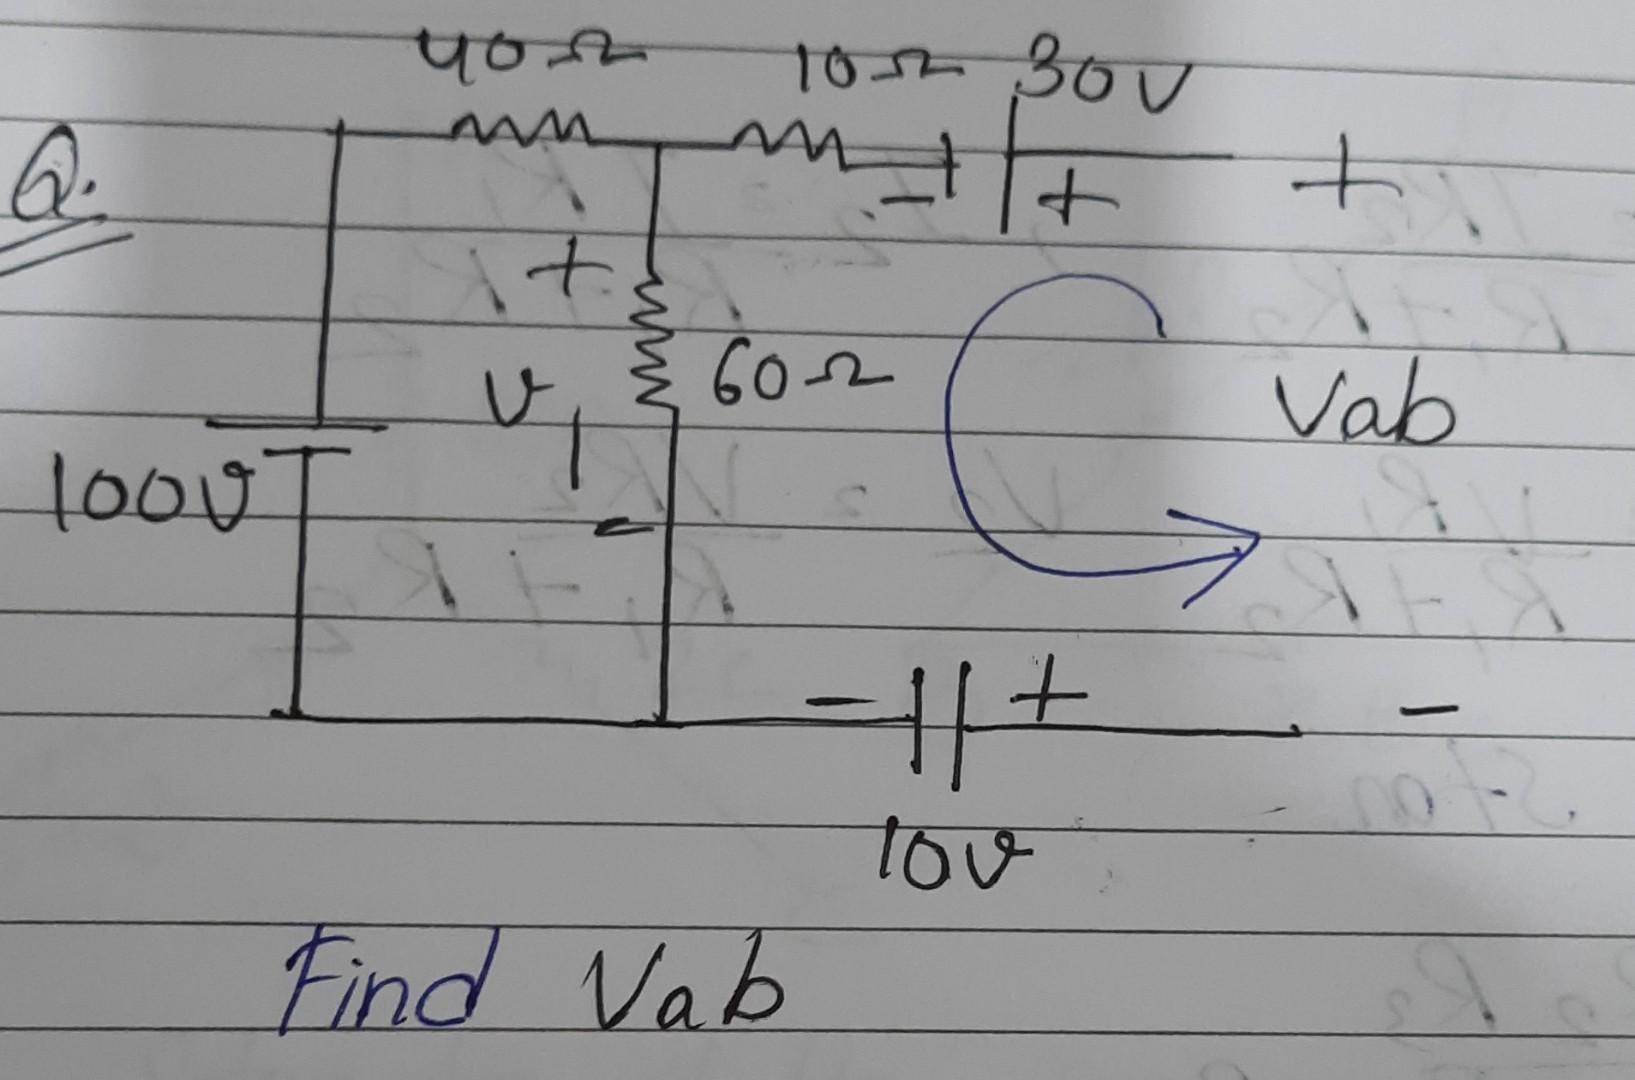 40Ω 10Ω 30V
Q.
- + +
+
V 60Ω Vab
100V
-
- + -
10V
Find Vab